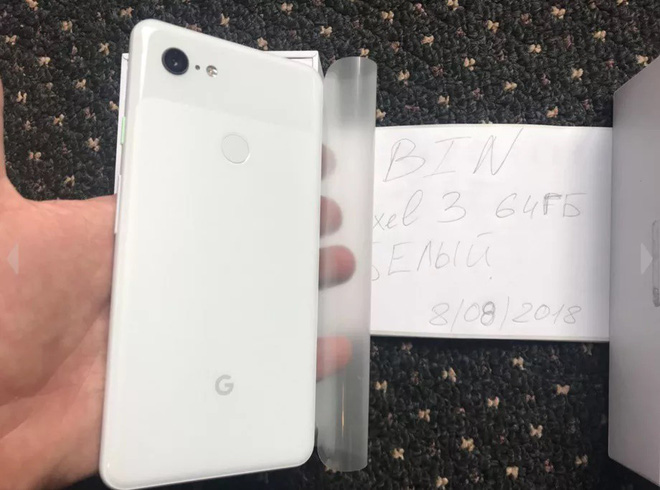 BIN
xel 3 64ГБ
БЕЛЫЙ
8/08/2018
G